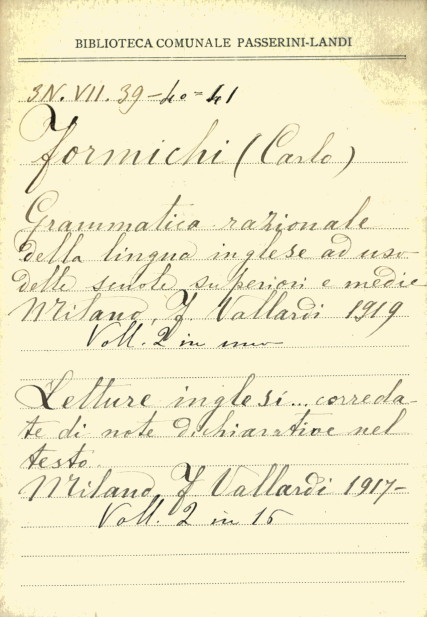 BIBLIOTECA COMUNALE PASSERINI-LANDI
3N. VII. 39-40=41
Formichi (Carlo)
Grammatica razionale
della lingua inglese ad uso
delle scuole superiori e medie
Milano, F Vallardi 1919
Voll. 2 in uno
Letture inglesi... correda-
te di note dichiarative nel
testo
Milano F Vallardi 1917-
Voll. 2 in 16